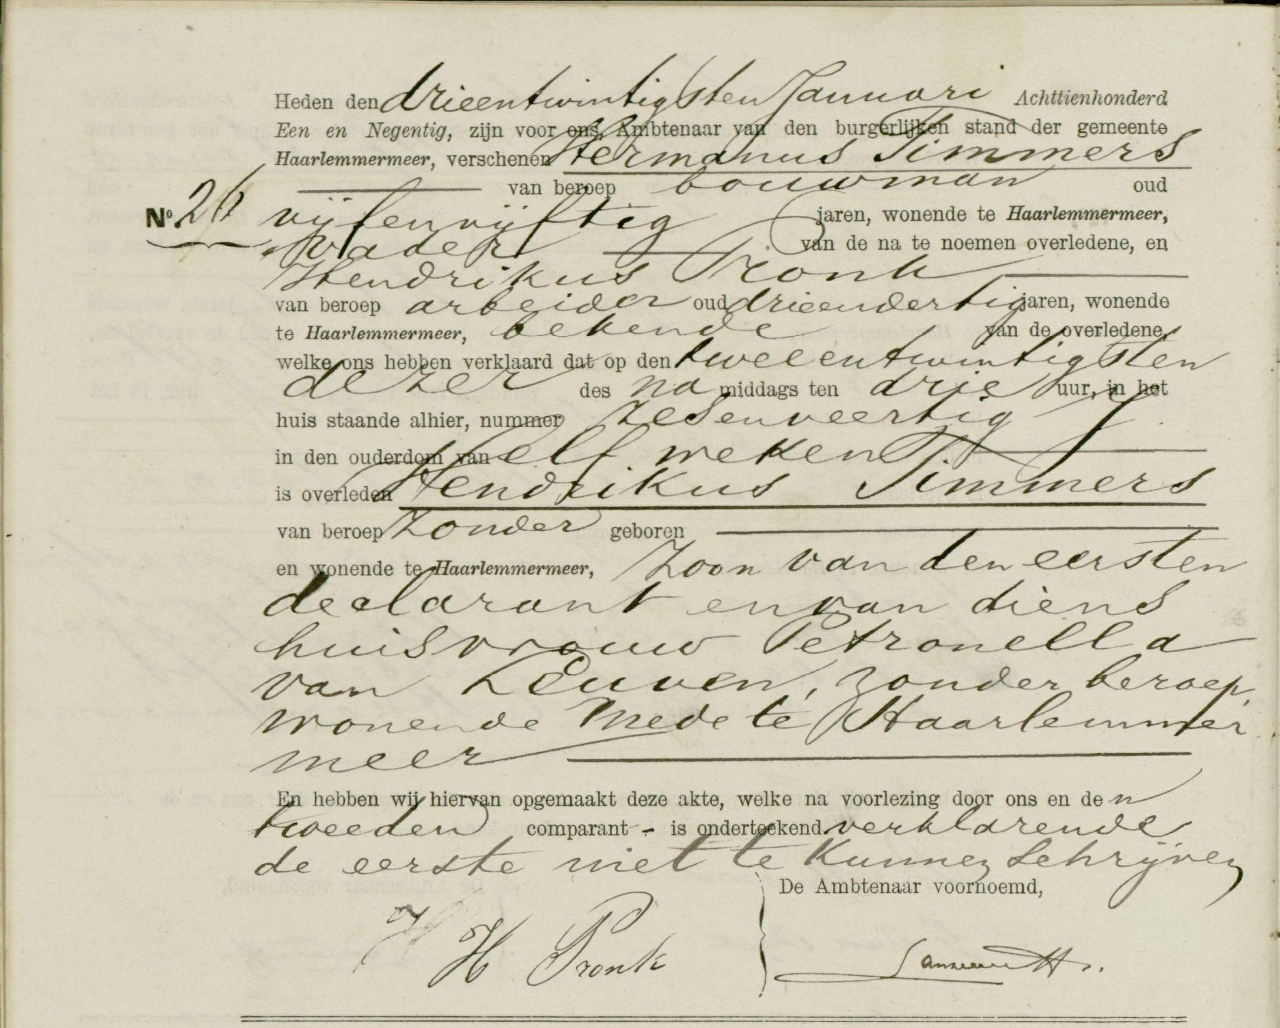 Heden den drieentwintigsten Januari Achttienhonderd
Een en Negentig, zijn voor ons, Ambtenaar van den burgerlijken stand der gemeente
Haarlemmermeer, verschenen Hermanus Timmers
van beroep bouwman oud
No. 26 vijfenvijftig jaren, wonende te Haarlemmermeer,
vader van de na te noemen overledene, en
Hendrikus Pronk
van beroep arbeider oud drieendertig jaren, wonende
te Haarlemmermeer, bekende van de overledene,
welke ons hebben verklaard dat op den tweeentwintigsten
dezer des na middags ten drie uur, in het
huis staande alhier, nummer zesenveertig
in den ouderdom van elf weken
is overleden Hendrikus Timmers
van beroep zonder geboren
en wonende te Haarlemmermeer, zoon van den eersten
declarant en van diens
huisvrouw Petronella
van Leuven, zonder beroep,
wonende mede te Haarlemmer
meer
En hebben wij hiervan opgemaakt deze akte, welke na voorlezing door ons en den
tweeden comparant - is onderteekend. verklarende
de eerste niet te kunnen schrijven
De Ambtenaar voornoemd,
H Pronk